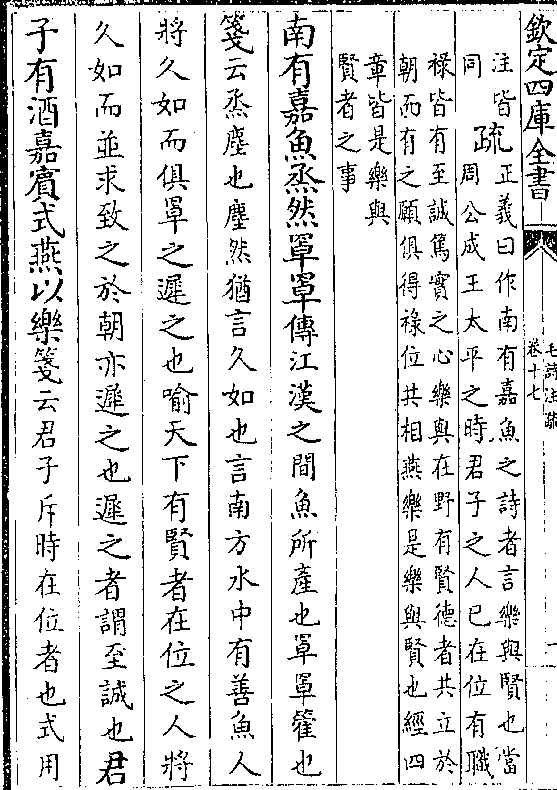 欽定四庫全書
毛詩注疏
卷十七
一
注皆
同
疏
正義曰作南有嘉魚之詩者言樂與賢也當
周公成王太平之時君子之人已在位有職
祿皆有至誠篤實之心樂與在野有賢德者共立於
朝而有之願俱得祿位共相燕樂是樂與賢也經四
章皆是樂與
賢者之事
南有嘉魚烝然罩罩傳江漢之間魚所產也罩罩籗也
箋云烝塵也塵然猶言久如也言南方水中有善魚人
將久如而俱罩之遲之也喻天下有賢者在位之人將
久如而並求致之於朝亦遲之也遲之者謂至誠也君
子有酒嘉賓式燕以樂箋云君子斥時在位者也式用